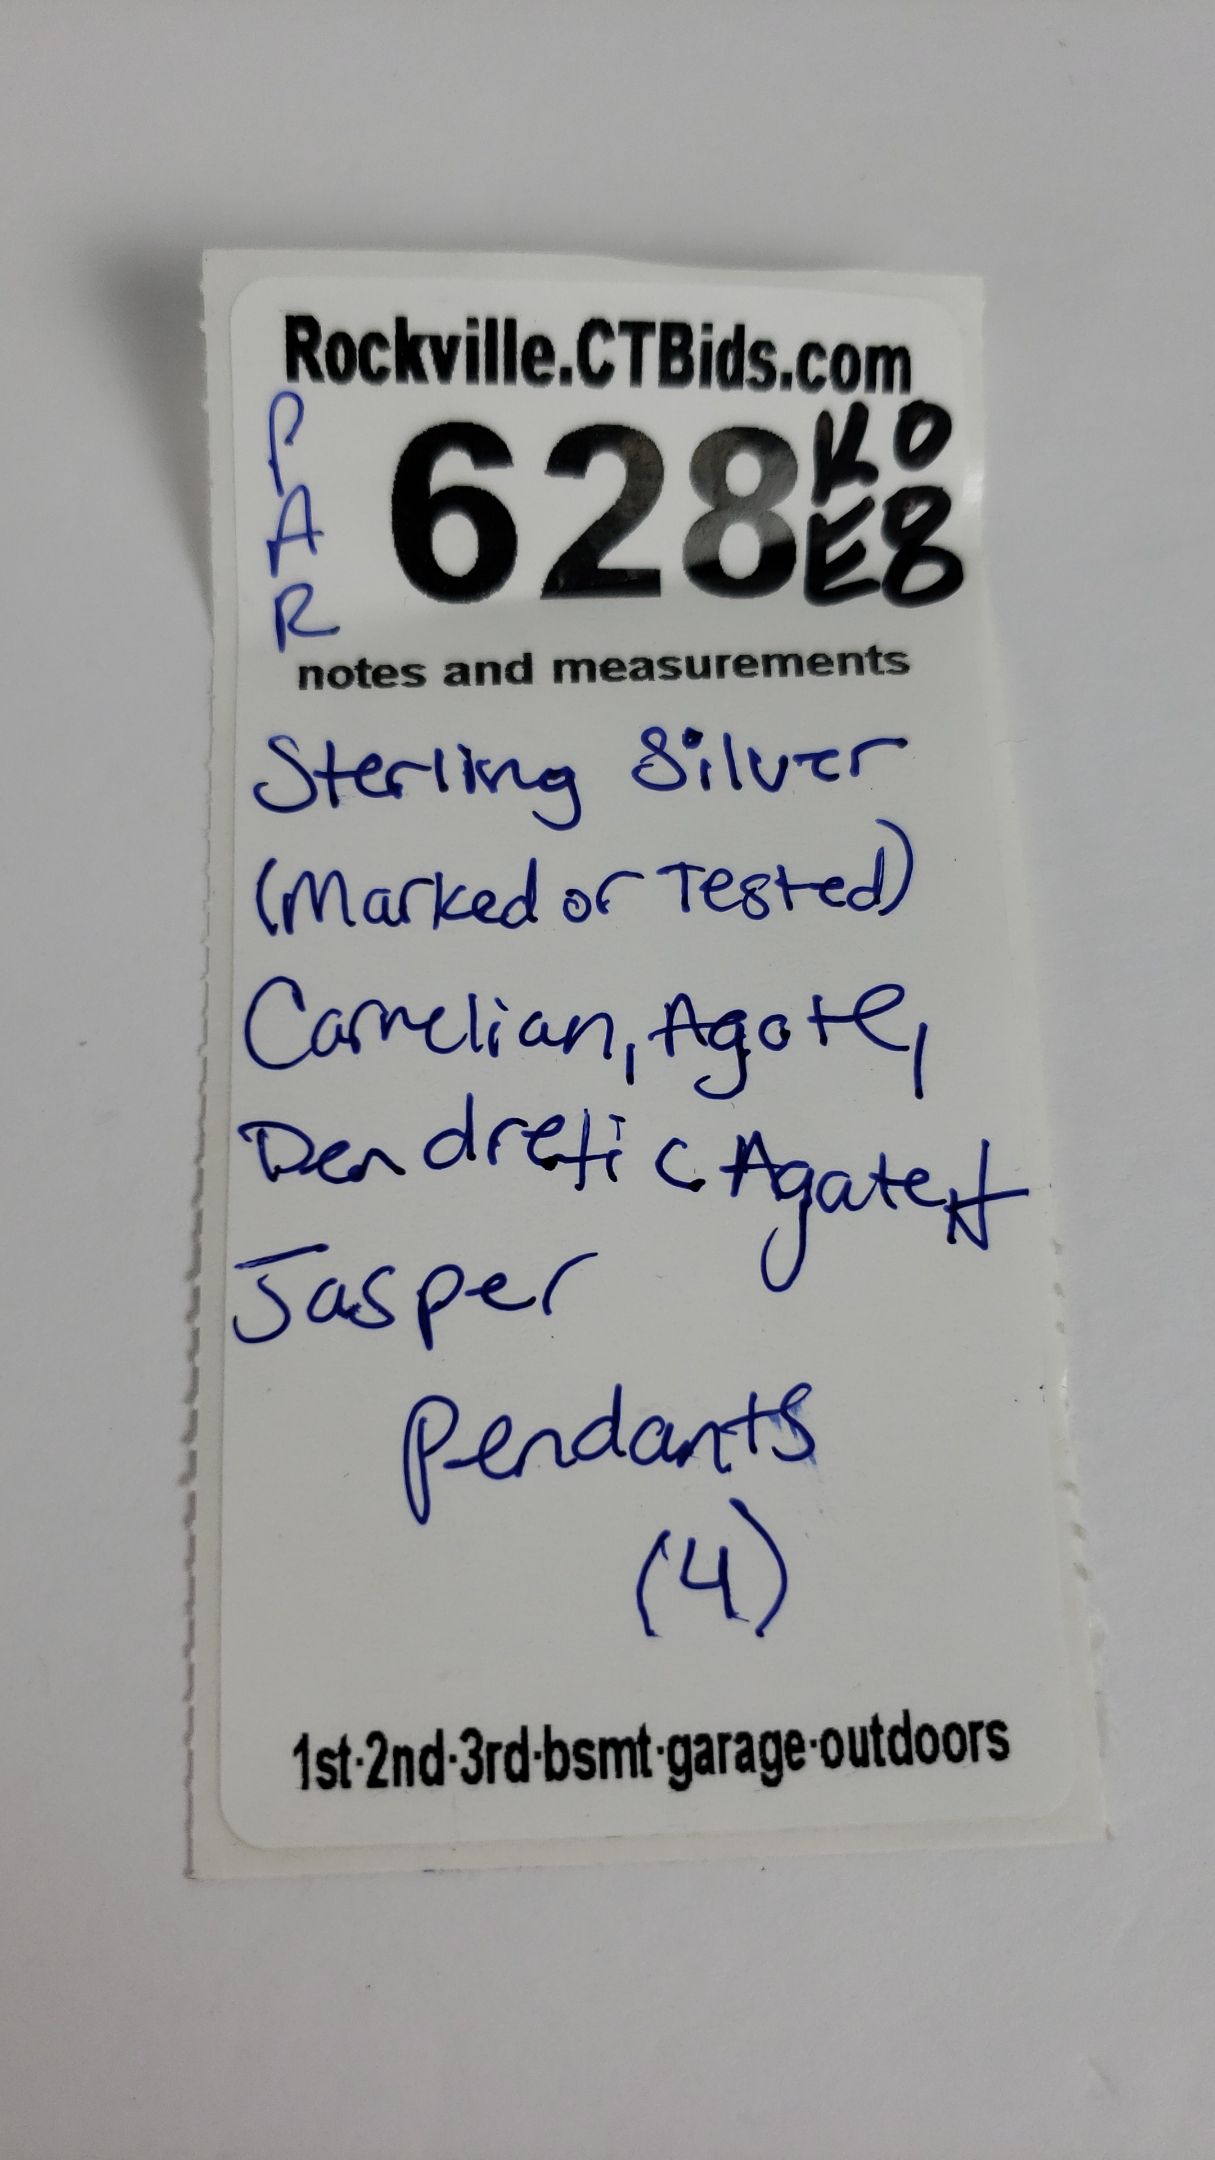 Rockville.CTBids.com
PAR
628
KO
E8
notes and measurements
Sterling Silver
(Marked or Tested)
Carnelian, Agate,
Dendretic Agate +
Jasper
Pendants
(4)
1st·2nd·3rd·bsmt·garage·outdoors